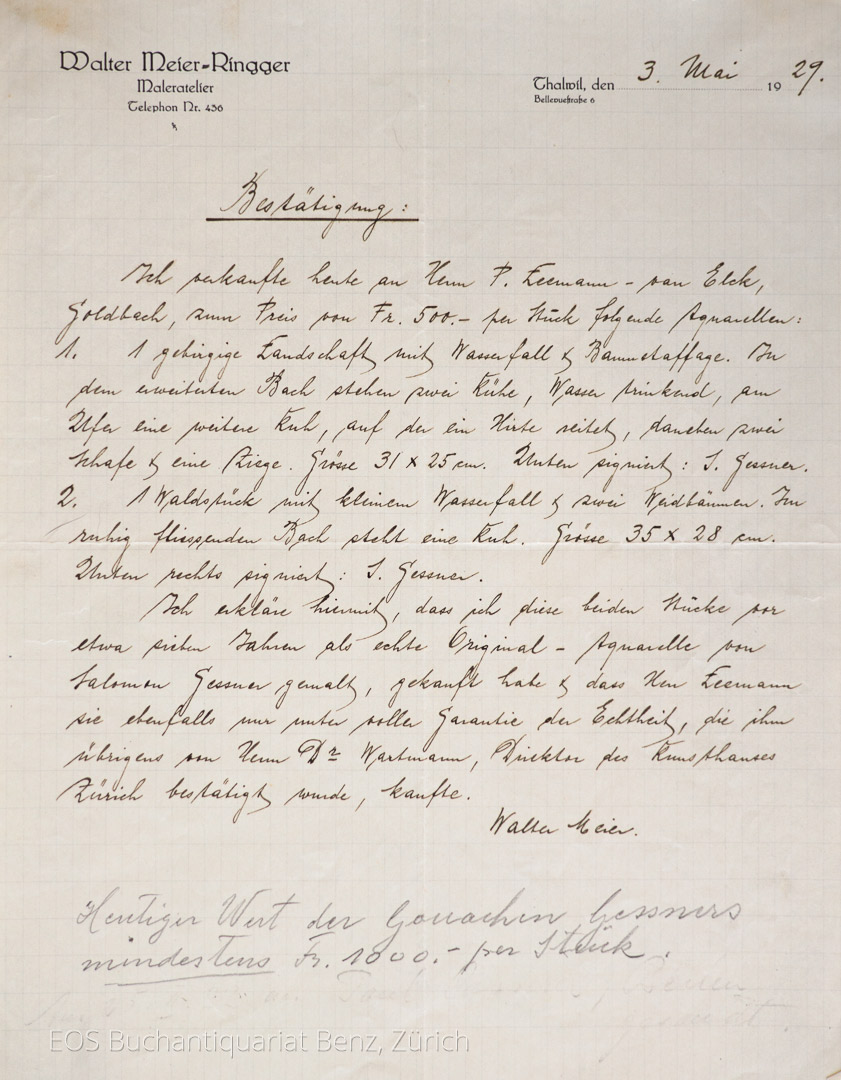 Walter Meier-Ringger
Maleratelier
Telephon Nr. 436
Thalwil, den 3. Mai 1929.
Bellevuestraße 6
Bestätigung:
Ich verkaufte heute an Herrn P. Leemann - van Elck,
Goldbach, zum Preis von Fr. 500.- per Stück folgende Aquarellen:
1. 1 gebirgige Landschaft mit Wasserfall & Baumstaffage. In
dem erweiterten Bach stehen zwei Kühe, Wasser trinkend, am
Ufer eine weitere Kuh, auf der ein Hirte reitet, daneben zwei
Schafe & eine Ziege. Grösse 31 x 25 cm. Unten signiert: S. Gessner.
2. 1 Waldstück mit kleinem Wasserfall & zwei Weidbäumen. Im
ruhig fliessenden Bach steht eine Kuh. Grösse 35 x 28 cm.
Unten rechts signiert: S. Gessner.
Ich erkläre hiermit, dass ich diese beiden Stücke vor
etwa sieben Jahren als echte Original - Aquarelle von
Salomon Gessner gemalt, gekauft habe & dass Herr Leemann
sie ebenfalls nur unter voller Garantie der Echtheit, die ihm
übrigens von Herrn Dr Wartmann, Direktor des Kunsthauses
Zürich bestätigt wurde, kaufte.
Walter Meier.
Heutiger Wert der Gouachen Gessners
mindestens Fr. 1000.- per Stück.
EOS Buchantiquariat Benz, Zürich